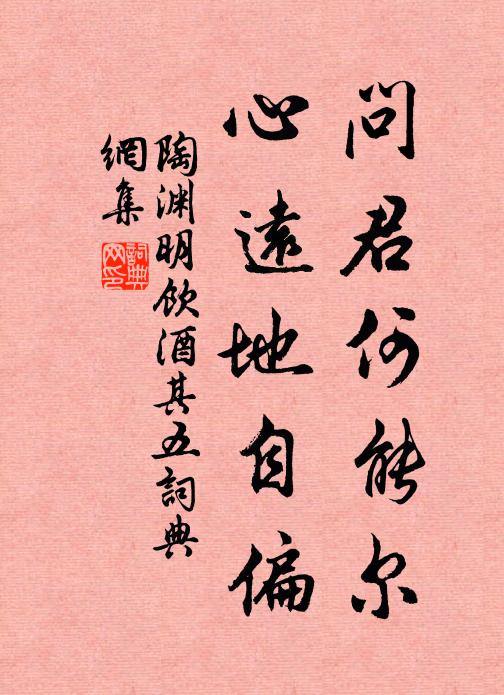 問君何能尔
心遠地自偏
陶渊明飲酒其五詞典
網集
詞典
网印